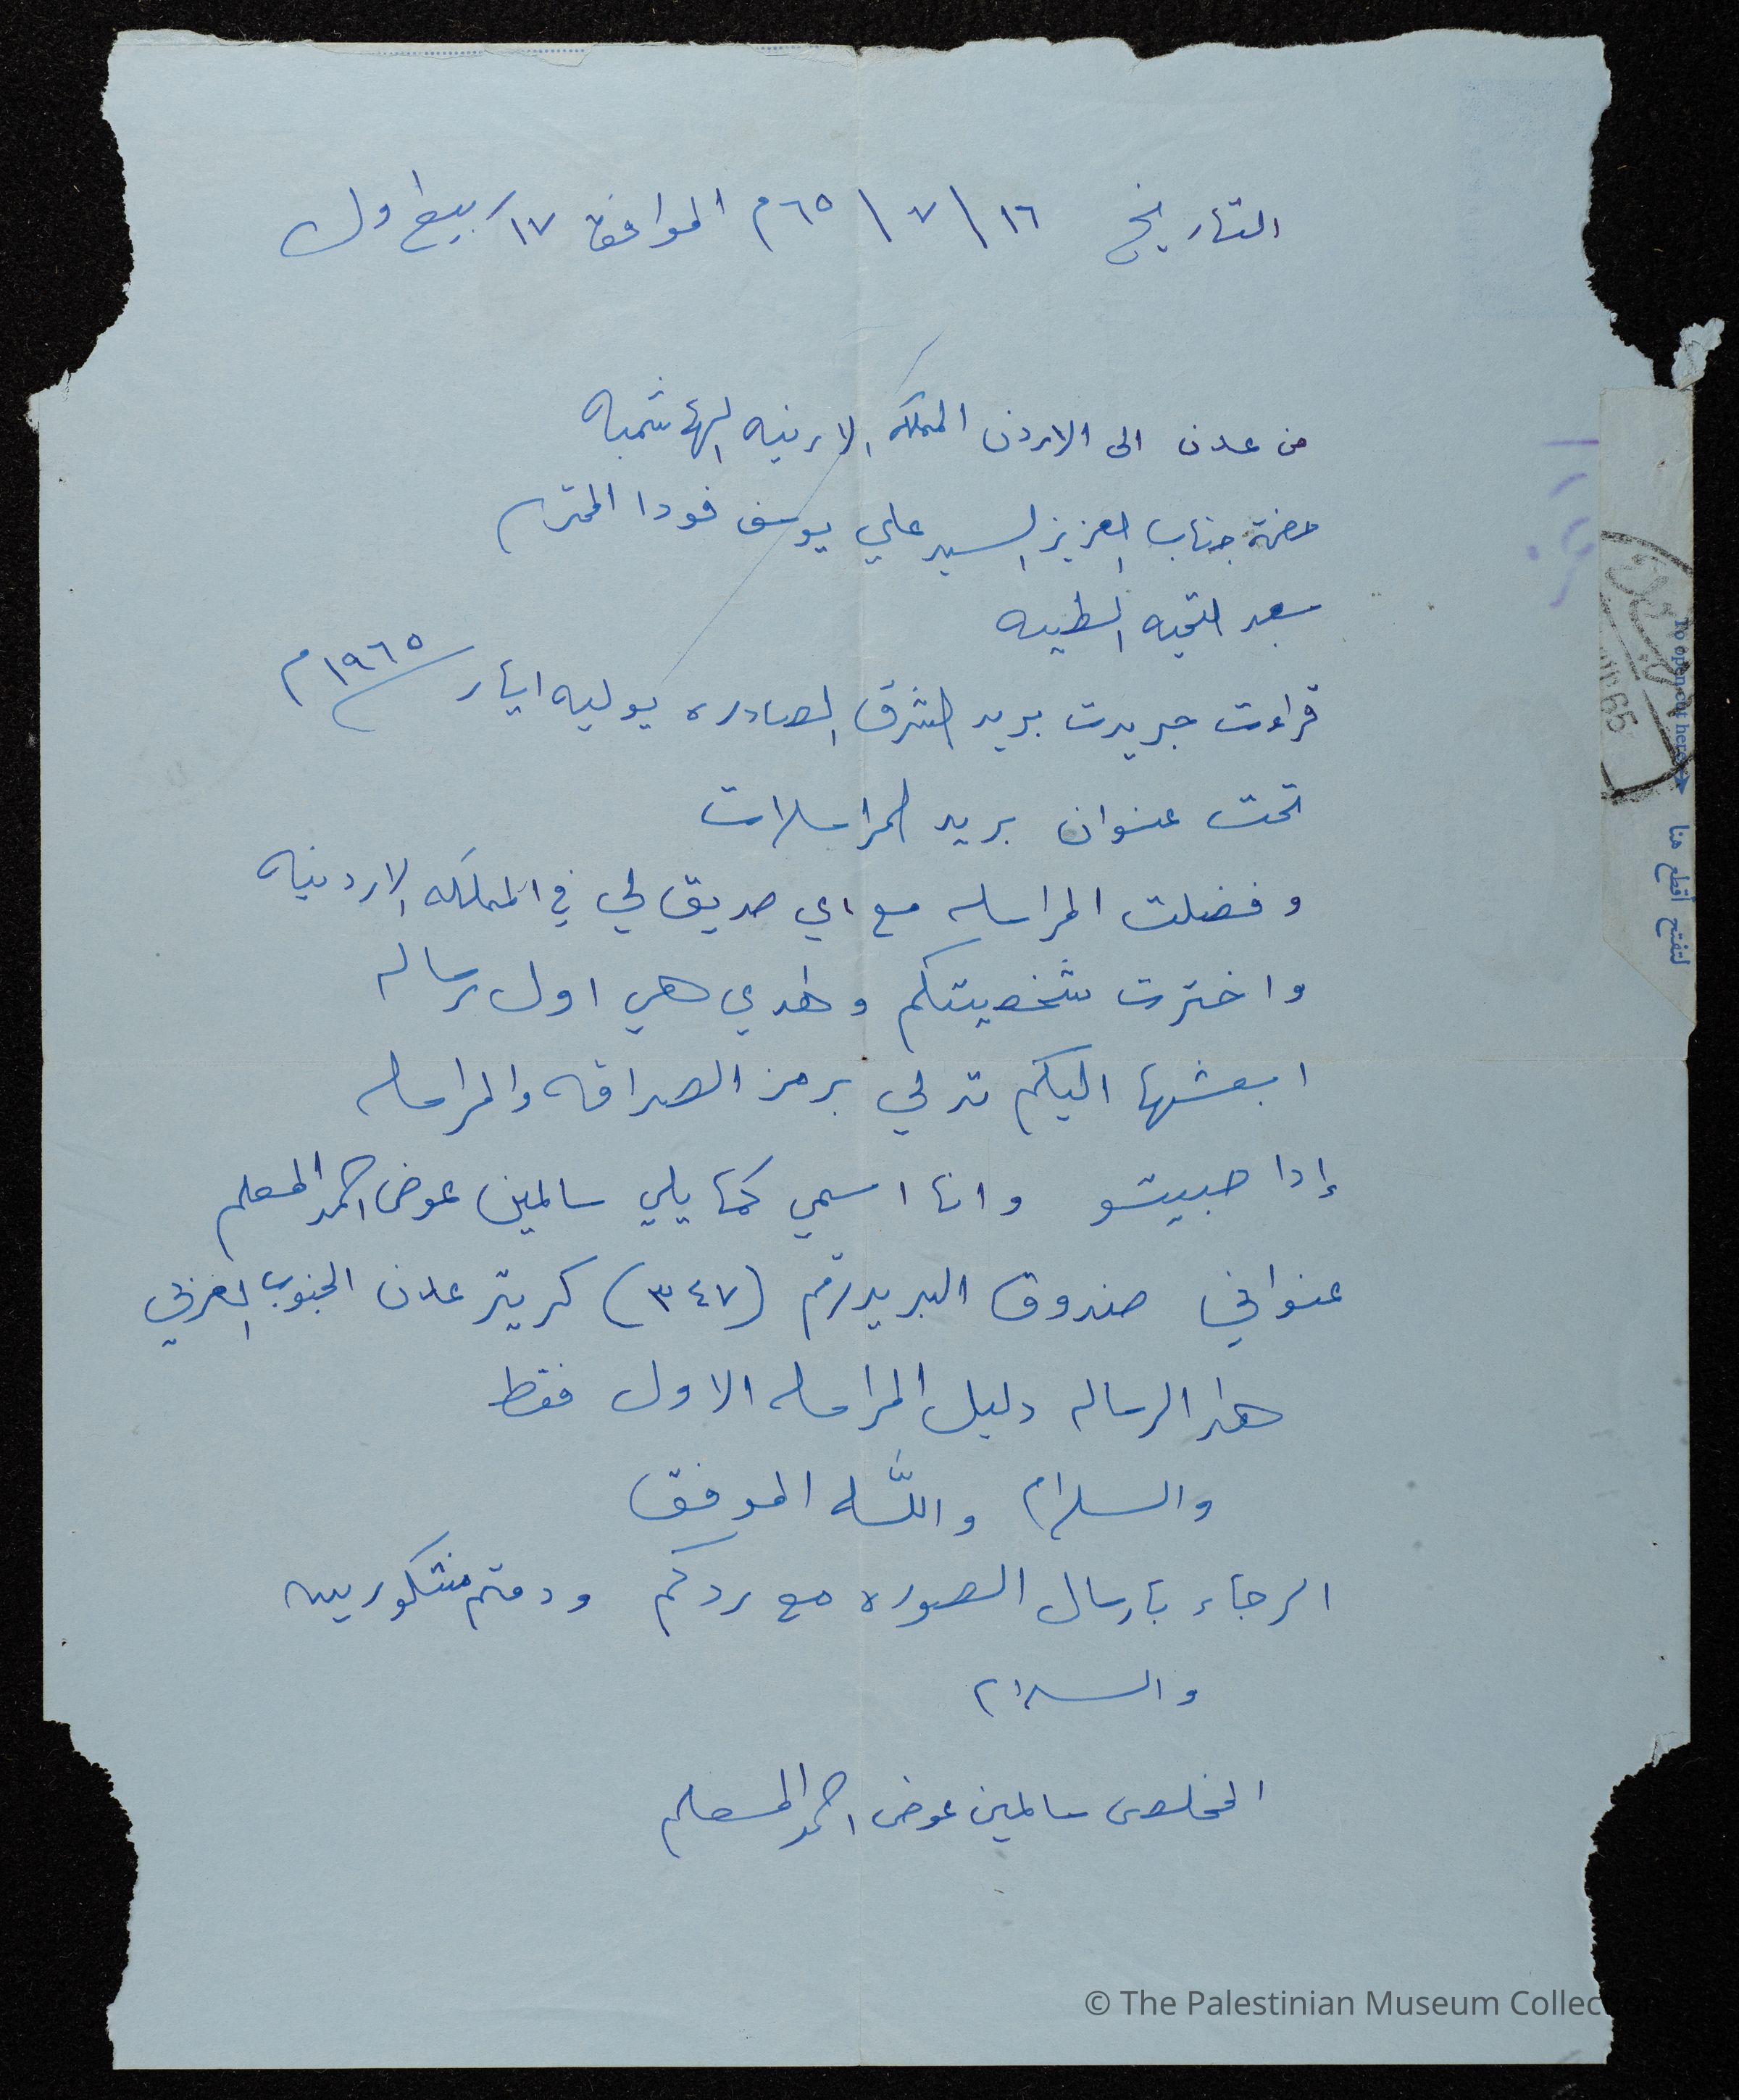 التاريخ ١٦ \ ٧ \ ٦٥م الموافق ١٧/ ربيع اول
من عدن الى الاردن المملكه الاردنيه الهاشميه
حضرة جناب العزيز السيد علي يوسف فودا المحترم
بعد التحيه الطيبه
قراءت جريدت بريد الشرق الصادره يوليه ايار / ١٩٦٥م
تحت عنوان بريد المراسلات
وفضلت المراسله مع اي صديق لي في المملكه الاردنيه
واخترت شخصيتكم وهذي هي اول رساله
ابعثها اليكم تدلي برمز الصداقه والمراسله
إدا حبيتو وانا اسمي كما يلي سالمين عوض احمد المعلم
عنواني صندوق البريد رقم (٣٤٧) كريتر عدن الجنوب العربي
هذا الرساله دليل المراسله الاول فقط
والسلام والله الموفق
الرجاء بارسال الصوره مع ردكم ودمتم مشكورين
والسلام
المخلص سالمين عوض احمد المعلم
To open cut here
لتفتح أقطع هنا
65
© The Palestinian Museum Collection